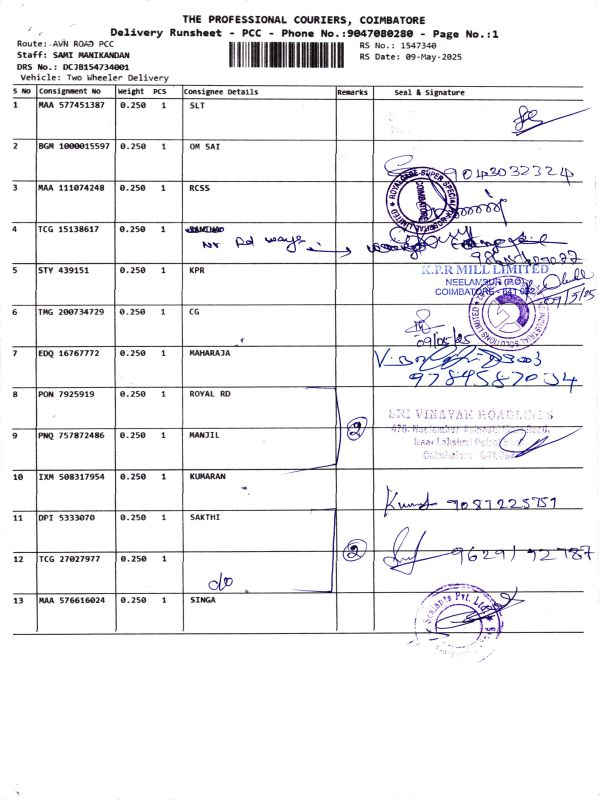 THE PROFESSIONAL COURIERS, COIMBATORE
Delivery Runsheet - PCC - Phone No.:9047080280 - Page No.:1
Route: AVN ROAD PCC
RS No.: 1547340
Staff: SAMI MANIKANDAN
RS Date: 09-May-2025
DRS No.: DCJB154734001
Vehicle: Two Wheeler Delivery
S No Consignment No Weight PCS Consignee Details Remarks Seal & Signature
1 MAA 577451387 0.250 1 SLT
2 BGM 1000015597 0.250 1 OM SAI
9043032324
3 MAA 111074248 0.250 1 RCSS
ROYALCARE SUPER SPECIALITY HOSPITAL LIMITED
COIMBATORE
4 TCG 15138617 0.250 1
5 STY 439151 0.250 1 KPR
K.P.R MILL LIMITED
NEELAMBUR (P.O)
COIMBATORE - 641 062
09/5/25
6 TMG 200734729 0.250 1 CG
INDUSTRIAL SOLUTIONS LIMITED
09/05/25
7 EDQ 16767772 0.250 1 MAHARAJA
9784587034
8 PON 7925919 0.250 1 ROYAL RD
2
SRI VINAYAK ROADLINES
9 PNQ 757872486 0.250 1 MANJIL
10 IXM 508317954 0.250 1 KUMARAN
9087225751
11 DPI 5333070 0.250 1 SAKTHI
2
12 TCG 27027977 0.250 1
do
9629192787
13 MAA 576616024 0.250 1 SINGA
Sealants Pvt. Ltd